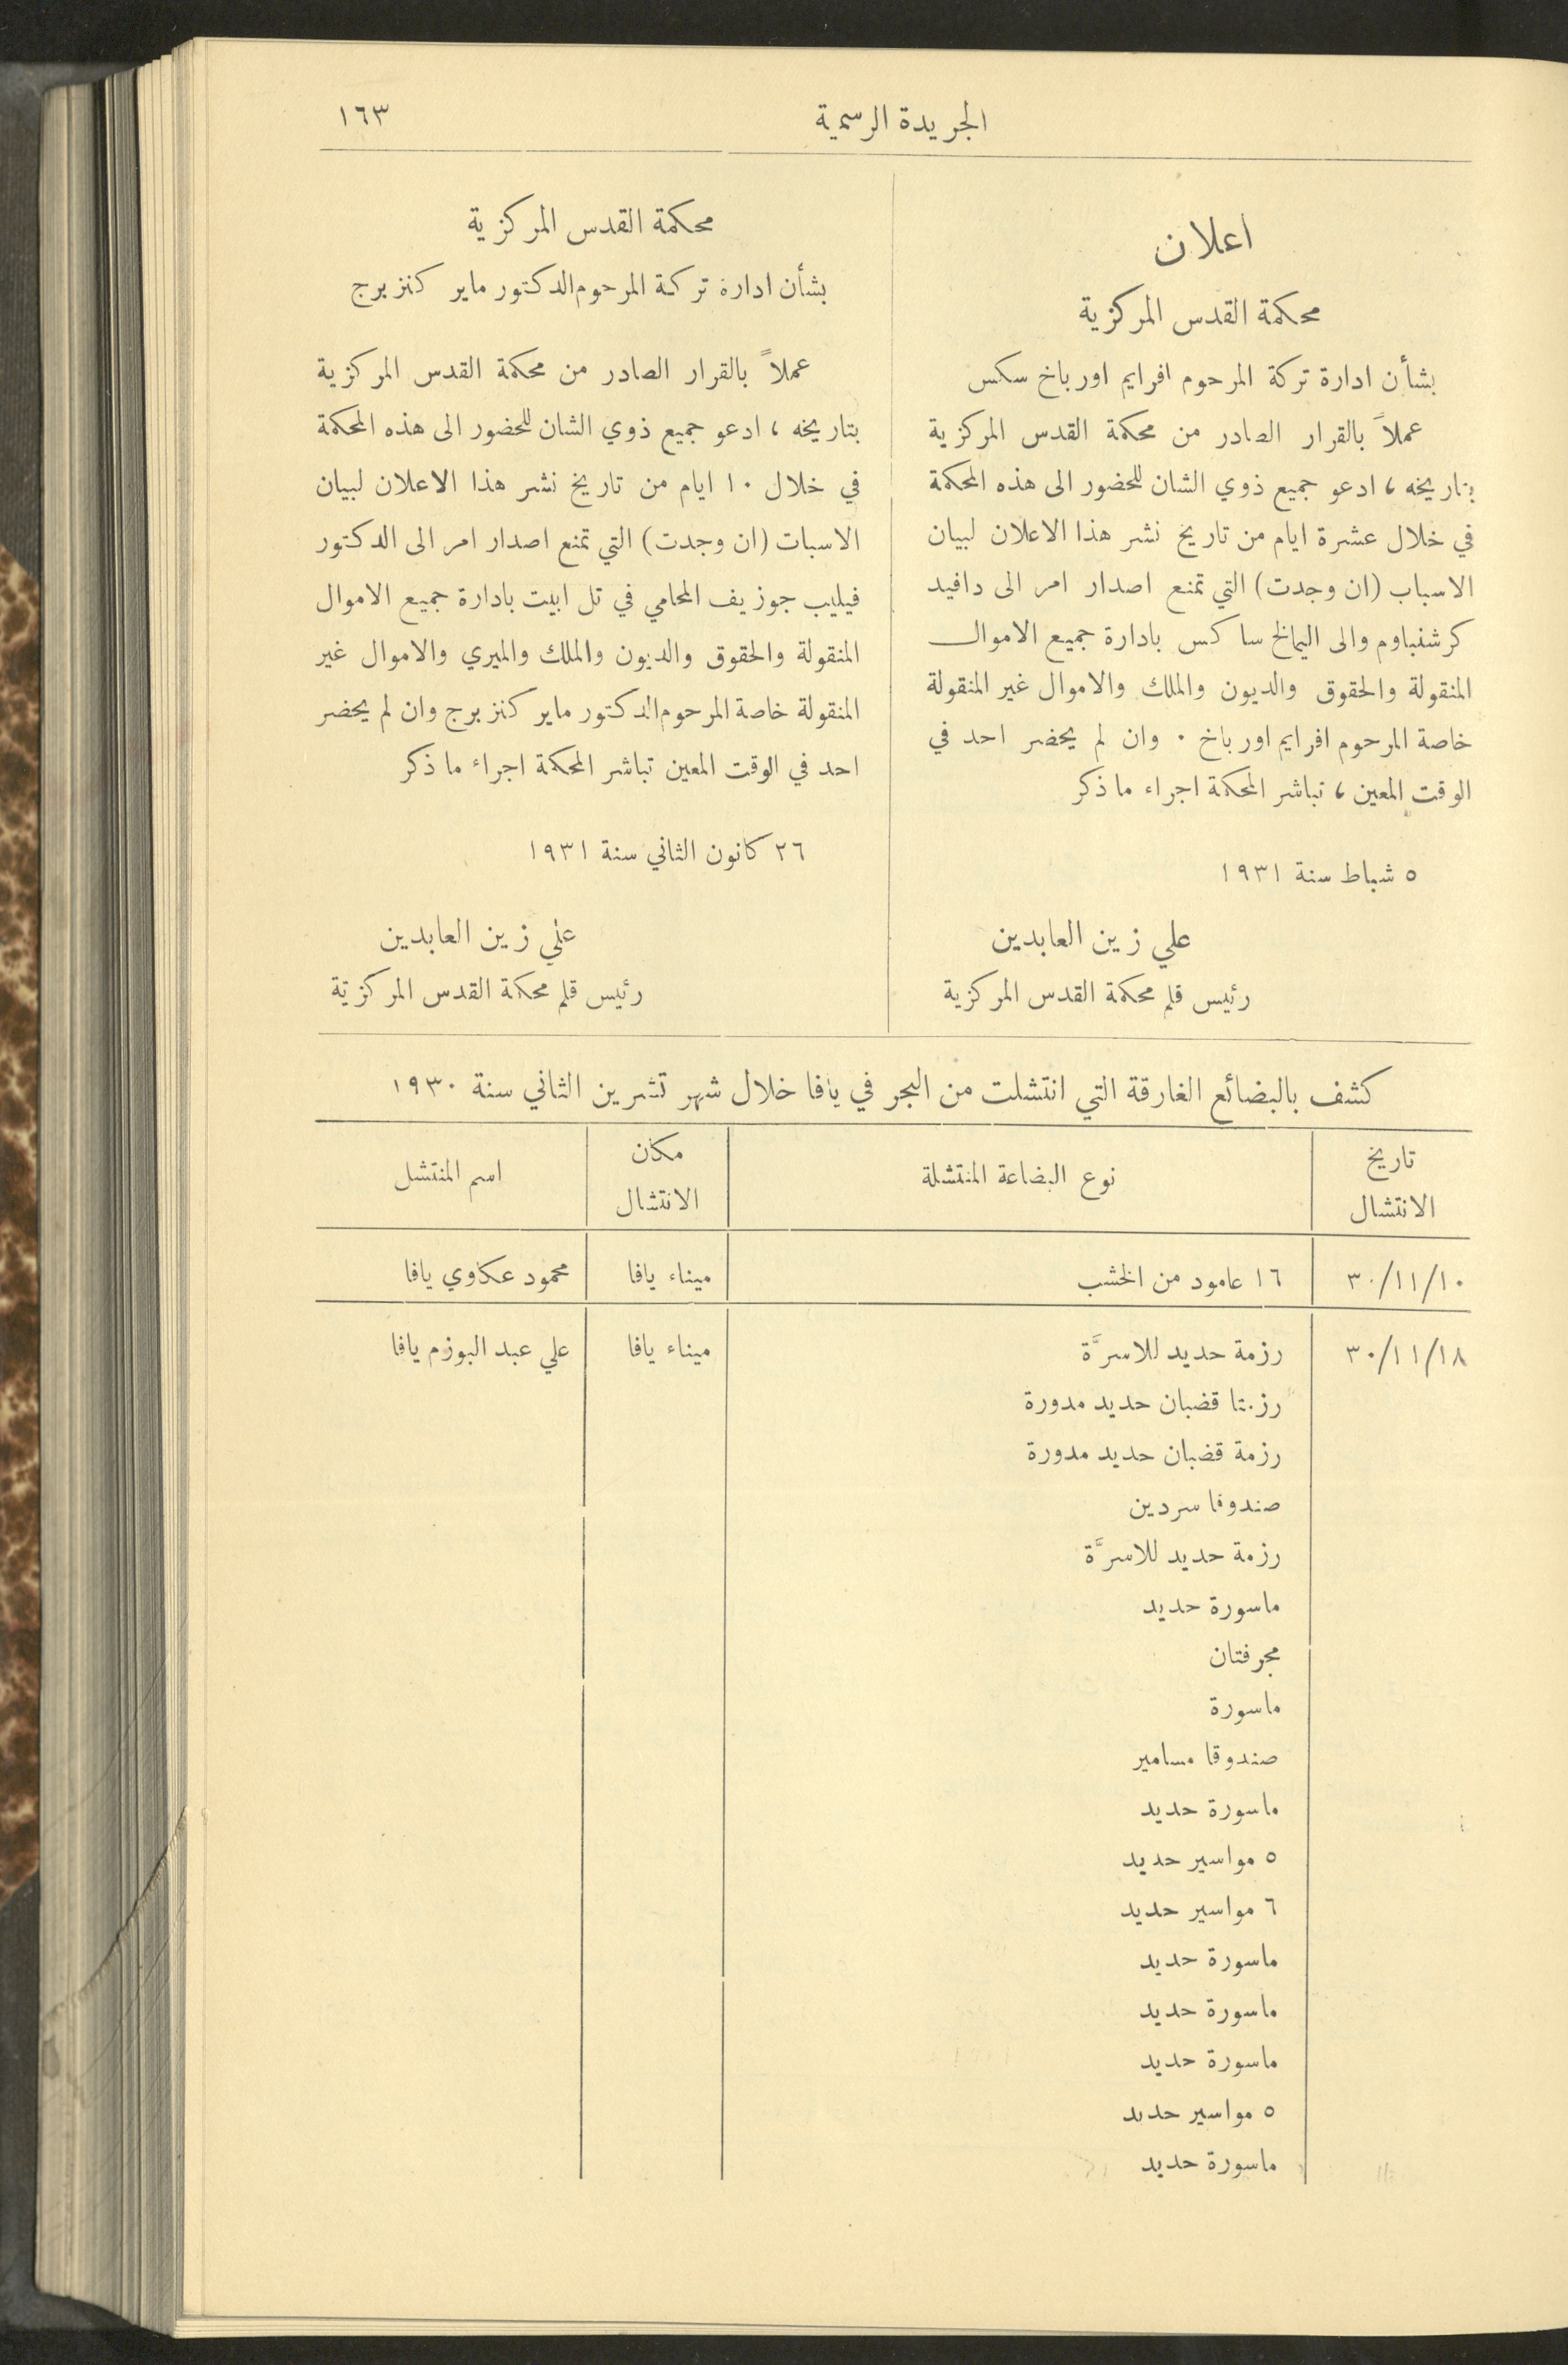 الجريدة الرسمية ١٦٣
اعلان
محكمة القدس المركزية
بشأن ادارة تركة المرحوم افرايم اورباخ سكس
عملاً بالقرار الصادر من محكمة القدس المركزية
بتاريخه ، ادعو جميع ذوي الشان للحضور الى هذه المحكمة
في خلال عشرة ايام من تاريخ نشر هذا الاعلان لبيان
الاسباب (ان وجدت) التي تمنع اصدار امر الى دافيد
كرشنباوم والى اليمالخ ساكس بادارة جميع الاموال
المنقولة والحقوق والديون والملك والاموال غير المنقولة
خاصة المرحوم افرايم اورباخ . وان لم يحضر احد في
الوقت المعين ، تباشر المحكمة اجراء ما ذكر
٥ شباط سنة ١٩٣١
علي زين العابدين
رئيس قلم محكمة القدس المركزية
محكمة القدس المركزية
بشأن ادارة تركة المرحوم الدكتور ماير كنزبرج
عملاً بالقرار الصادر من محكمة القدس المركزية
بتاريخه ، ادعو جميع ذوي الشان للحضور الى هذه المحكمة
في خلال ١٠ ايام من تاريخ نشر هذا الاعلان لبيان
الاسبات (ان وجدت) التي تمنع اصدار امر الى الدكتور
فيليب جوزيف المحامي في تل ابيت بادارة جميع الاموال
المنقولة والحقوق والديون والملك والميري والاموال غير
المنقولة خاصة المرحوم الدكتور ماير كنزبرج وان لم يحضر
احد في الوقت المعين تباشر المحكمة اجراء ما ذكر
٢٦ كانون الثاني سنة ١٩٣١
علي زين العابدين
رئيس قلم محكمة القدس المركزية
كشف بالبضائع الغارقة التي انتشلت من البحر في يافا خلال شهر تشرين الثاني سنة ١٩٣٠
تاريخ الانتشال نوع البضاعة المنتشلة مكان الانتشال اسم المنتشل
٣٠/١١/١٠ ١٦ عامود من الخشب ميناء يافا محمود عكاوي يافا
٣٠/١١/١٨ رزمة حديد للاسرَّة ميناء يافا علي عبد البوزم يافا
رزمتا قضبان حديد مدورة
رزمة قضبان حديد مدورة
صندوقا سردين
رزمة حديد للاسرَّة
ماسورة حديد
مجرفتان
ماسورة
صندوقا مسامير
ماسورة حديد
٥ مواسير حديد
٦ مواسير حديد
ماسورة حديد
ماسورة حديد
ماسورة حديد
٥ مواسير حديد
ماسورة حديد